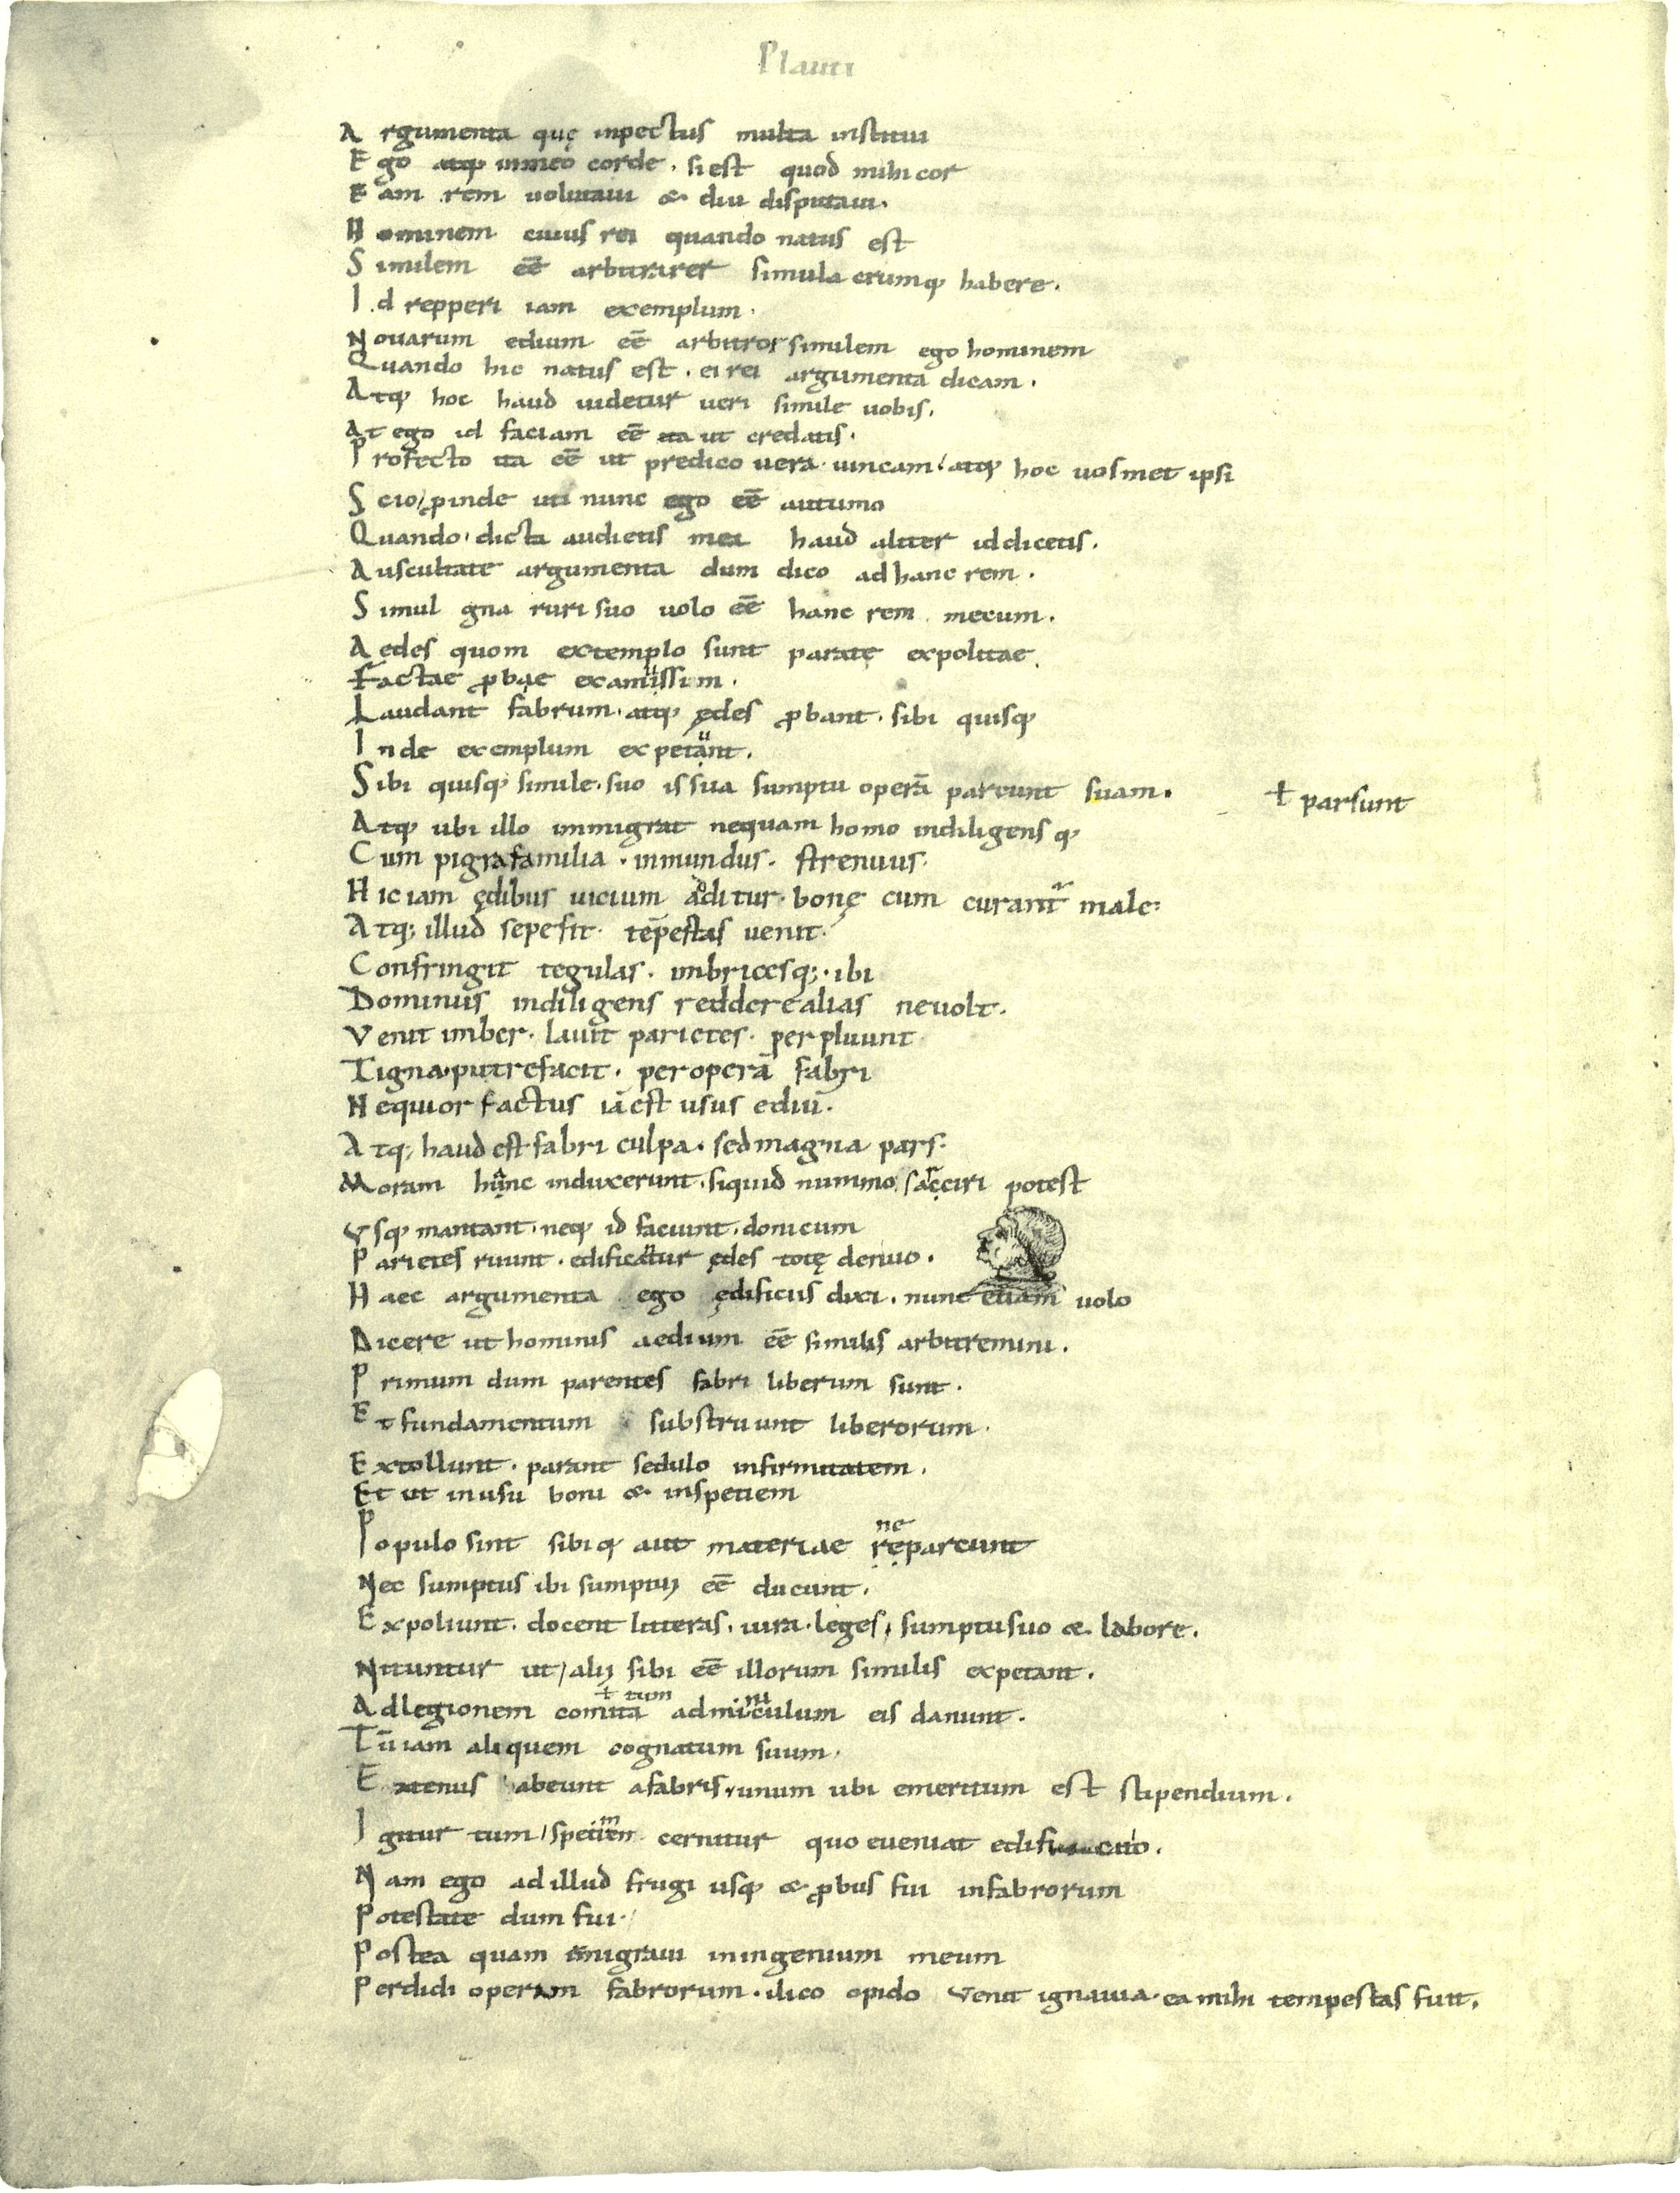 Plauti
Argumenta quę inpectus multa institui
Ego atq; inmeo corde. siest quod mihi cor
Eam rem volutaui & diu disputaui.
Hominem cuius rei quando natus est
Similem eē arbitrarer simulacrumq; habere.
Id repperi iam exemplum.
Nouarum edium eē arbitror similem ego hominem
Quando hic natus est. ei rei argumenta dicam.
Atq; hoc haud uidetur ueri simile uobis.
At ego id faciam eē ita ut credatis.
Profecto ita eē ut predico vera. uincam/atq; hoc uosmet ipsi
Scio/ꝓinde uti nunc ego eē autumo
Quando. dicta audietis mea haud aliter id dicetis.
Auscultate argumenta dum dico ad hanc rem.
Simul gna ruri suo uolo eē hanc rem mecum.
Aedes quom extemplo sunt paratę expolitae
Factae ꝓbae examissim.
Laudant fabrum. atq; ędes ꝓbant. sibi quisq;
Inde exemplum expetunt.
Sibi quisq; simile. suo issua sumptu operā parcunt suam. ł parsunt
Atq; ubi illo immigrat nequam homo indiligensq;
Cum pigra familia. inmundus. strenuus.
Hic iam ędibus uicium additur. bonę cum curantr̄ male:
Atq; illud sepe fit. tēpestas uenit.
Confringit tegulas. imbricesq;. ibi
Dominus indiligens reddere alias neuolt.
Venit imber. lauit parietes. perpluunt
Tigna. putrefacit. per operā fabri
Nequior factus iā est usus ediū.
Atq; haud est fabri culpa. sed magna pars.
Moram hanc induxerunt. siquid nummo sarciri potest
Vsq; mantant. neq; id faciunt. donicum
Parietes ruunt. edificantur ędes totę denuo.
Haec argumenta ego ędificiis dixi. nunc etiam uolo
Dicere ut hominis aedium eē similis arbitremini.
Primum dum parentes fabri liberum sunt.
Et fundamentum substruunt liberorum.
Extollunt. parant sedulo infirmitatem.
Et ut inusu boni & inspetiem
Populo sint sibiq; aut materiae ne reparcunt
Nec sumptus ibi sumptuj eē ducunt.
Expoliunt. docent litteras. iura. leges, sumptu suo & labore.
Nituntur ut/alij sibi eē illorum similis expetant.
ł tum ni
Ad legionem comita adminiculum eis danunt.
Tū iam aliquem cognatum suum.
Extenus abeunt afabris. unum ubi emeritum est stipendium.
Igitur tum/specimen cernitur quo eueniat edificatio.
Nam ego ad illud frugi usq; & ꝓbus fui infabrorum
Potestate dum fui.
Postea quam inmigraui iningenium meum
Perdidi operam fabrorum. ilico opido venit ignauia. ea mihi tempestas fuit.